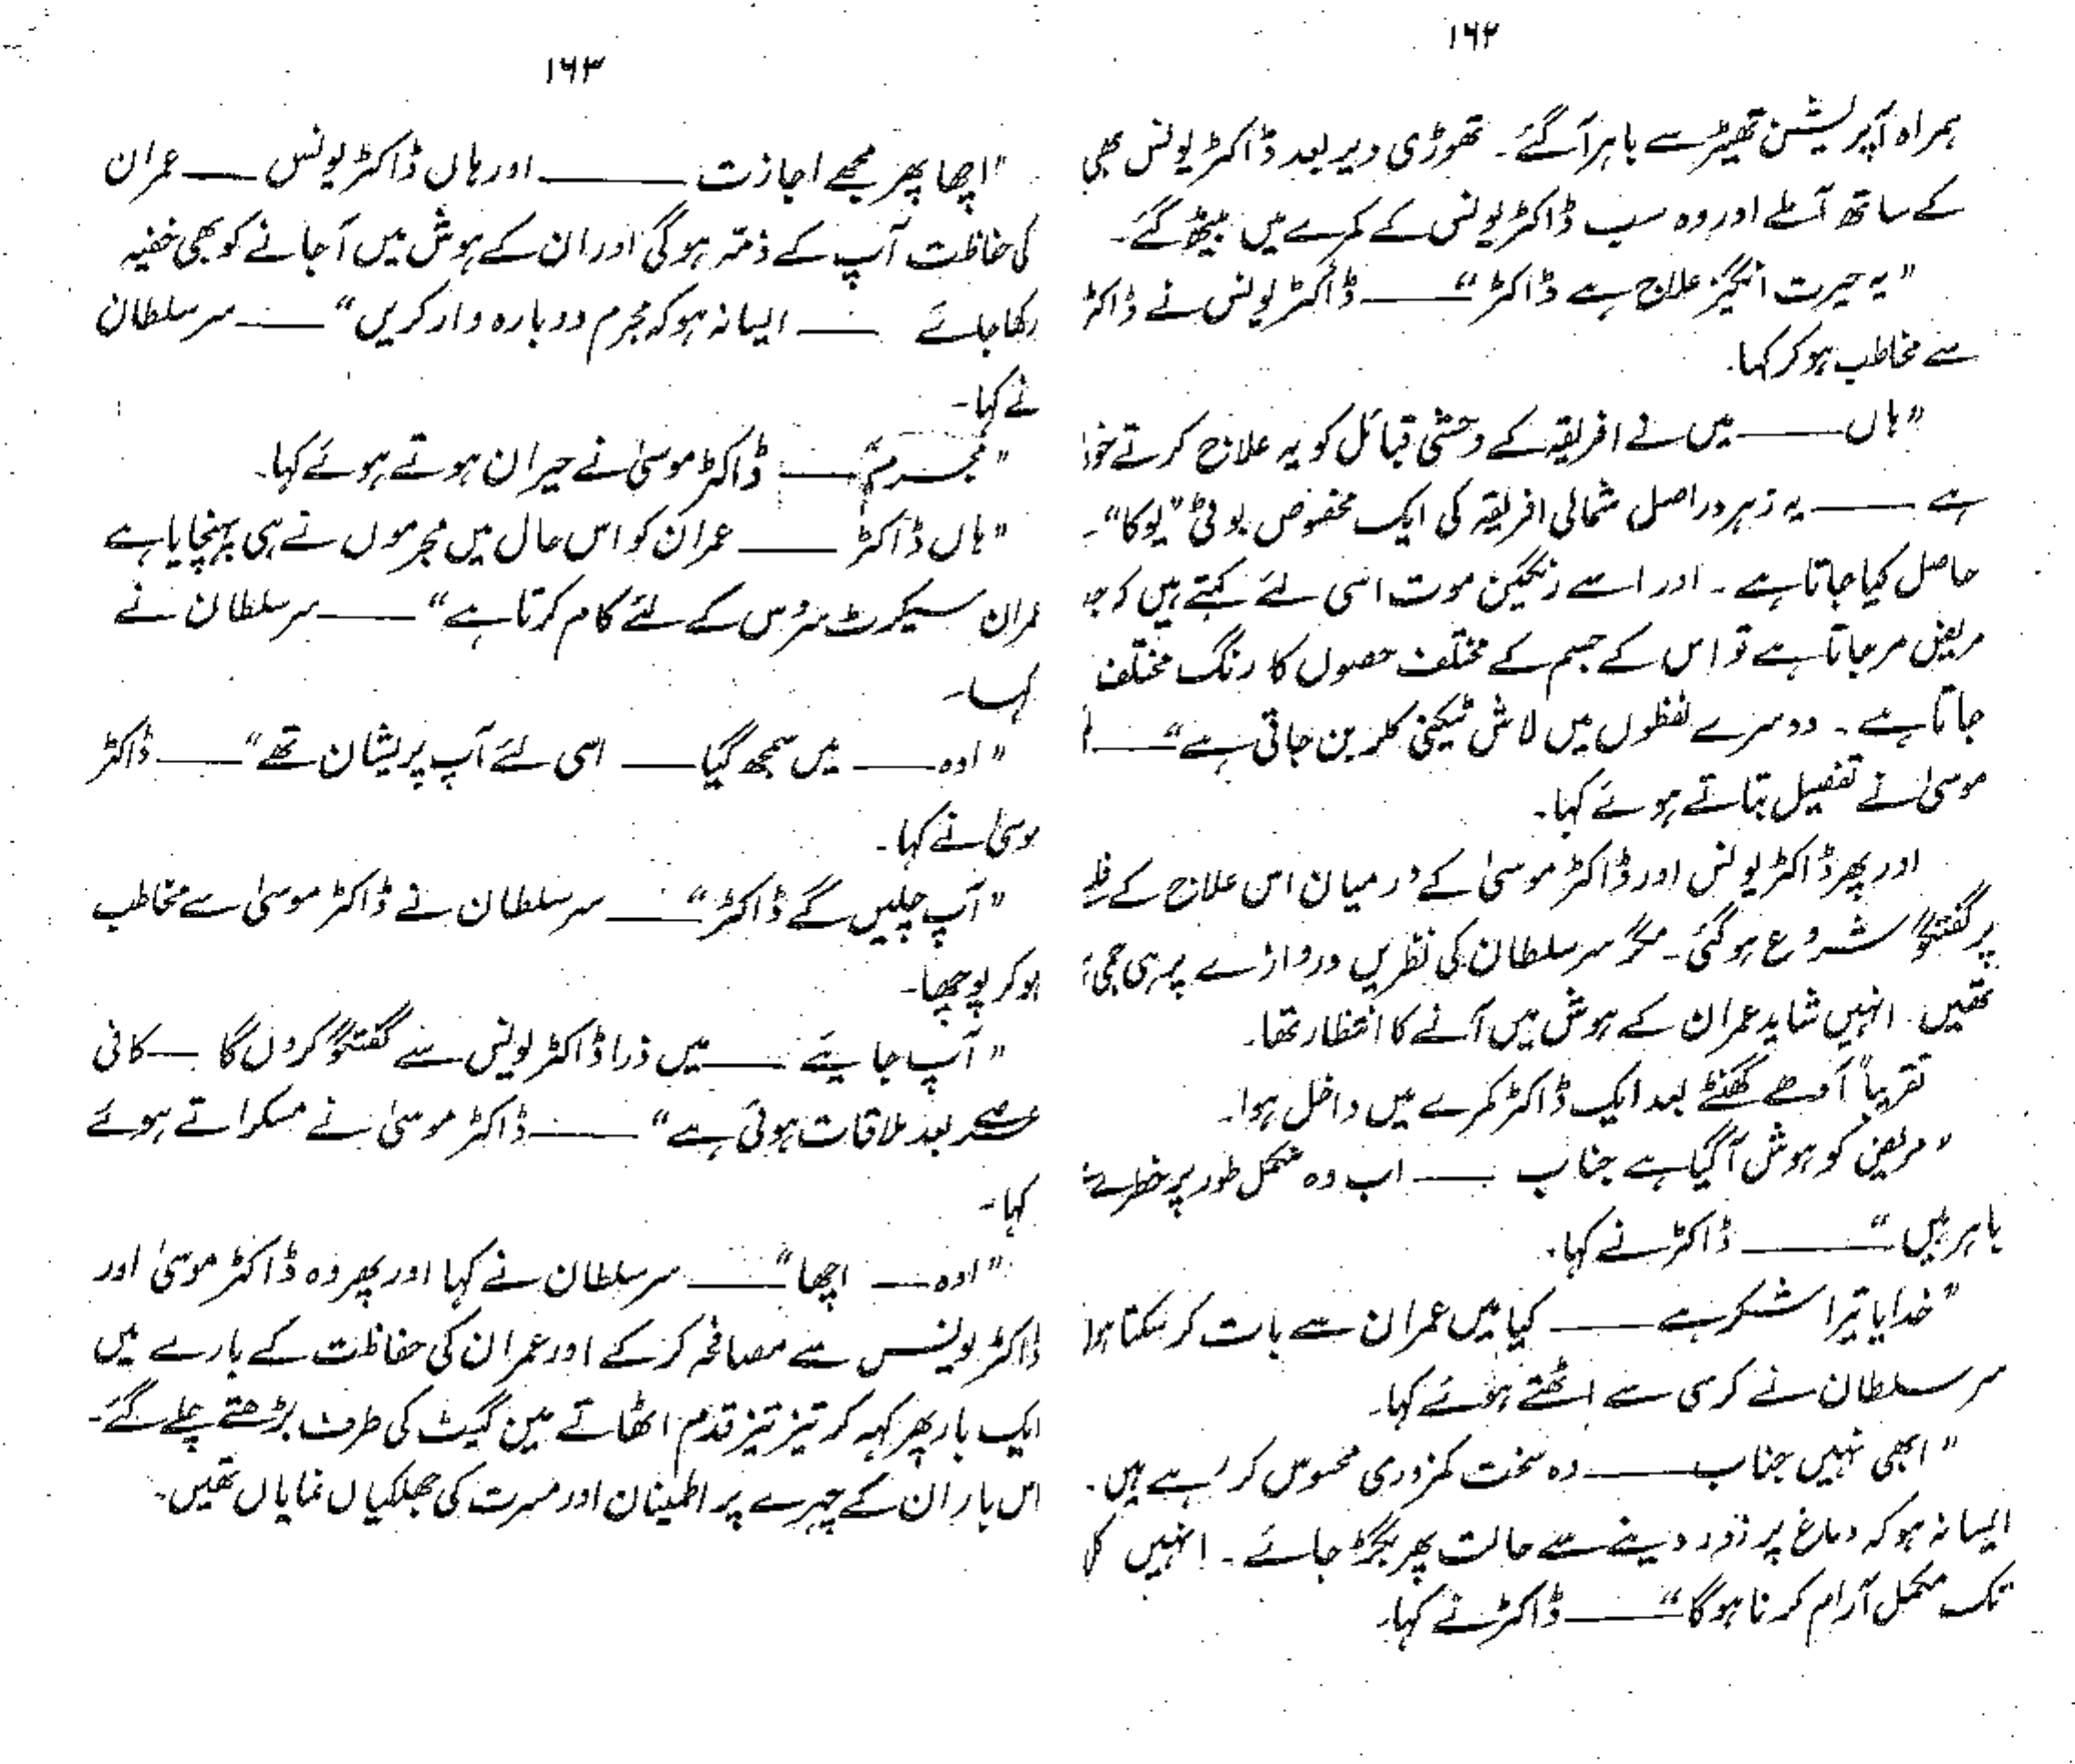 ۱۶۲
ہمراہ آپریشن تھیٹر سے باہر آ گئے۔ تھوڑی دیر بعد ڈاکٹر یونس بھی
کے ساتھ آ ملے اور وہ سب ڈاکٹر یونس کے کمرے میں بیٹھ گئے۔
"یہ حیرت انگیز علاج ہے ڈاکٹر" ——— ڈاکٹر یونس نے ڈاکٹر
سے مخاطب ہو کر کہا۔
"ہاں ——— میں نے افریقہ کے وحشی قبائل کو یہ علاج کرتے خود
ہے ——— یہ زہر دراصل شمالی افریقہ کی ایک مخصوص بوٹی "یوکا"۔
حاصل کیا جاتا ہے۔ اور اسے رنگین موت اسی لئے کہتے ہیں کہ
مریض مر جاتا ہے تو اس کے جسم کے مختلف حصوں کا رنگ مختلف
جاتا ہے۔ دوسرے لفظوں میں لاش ٹیکنی کلر بن جاتی ہے" ———
موسیٰ نے تفصیل بتاتے ہوئے کہا۔
اور پھر ڈاکٹر یونس اور ڈاکٹر موسیٰ کے درمیان اس علاج کے
پر گفتگو شروع ہو گئی۔ مگر سر سلطان کی نظریں دروازے پر ہی جمی
تھیں۔ انہیں شاید عمران کے ہوش میں آنے کا انتظار تھا۔
تقریباً آدھے گھنٹے بعد ایک ڈاکٹر کمرے میں داخل ہوا۔
"مریض کو ہوش آ گیا ہے جناب ——— اب وہ مکمل طور پر خطرے
باہر ہیں" ——— ڈاکٹر نے کہا۔
"خدایا تیرا شکر ہے ——— کیا میں عمران سے بات کر سکتا ہوں
سر سلطان نے کرسی سے اٹھتے ہوئے کہا۔
"ابھی نہیں جناب ——— وہ سخت کمزوری محسوس کر رہے ہیں۔
ایسا نہ ہو کہ دماغ پر زور دینے سے حالت پھر بگڑ جائے۔ انہیں
تک مکمل آرام کرنا ہوگا" ——— ڈاکٹر نے کہا۔
۱۶۳
"اچھا پھر مجھے اجازت ——— اور ہاں ڈاکٹر یونس ——— عمران
کی حفاظت آپ کے ذمہ ہو گی اور ان کے ہوش میں آ جانے کو بھی خفیہ
رکھا جائے ——— ایسا نہ ہو کہ مجرم دوبارہ وار کریں" ——— سر سلطان
نے کہا۔
"مجرم" ——— ڈاکٹر موسیٰ نے حیران ہوتے ہوئے کہا۔
"ہاں ڈاکٹر ——— عمران کو اس حال میں مجرموں نے ہی پہنچایا ہے
عمران سیکرٹ سروس کے لئے کام کرتا ہے" ——— سر سلطان نے
کہا۔
"اوہ ——— میں سمجھ گیا ——— اسی لئے آپ پریشان تھے" ——— ڈاکٹر
موسیٰ نے کہا۔
"آپ چلیں گے ڈاکٹر" ——— سر سلطان نے ڈاکٹر موسیٰ سے مخاطب
ہو کر پوچھا۔
"آپ جایئے ——— میں ذرا ڈاکٹر یونس سے گفتگو کروں گا — کافی
عرصے بعد ملاقات ہوئی ہے" ——— ڈاکٹر موسیٰ نے مسکراتے ہوئے
کہا۔
"اوہ ——— اچھا" ——— سر سلطان نے کہا اور پھر وہ ڈاکٹر موسیٰ اور
ڈاکٹر یونس سے مصافحہ کر کے اور عمران کی حفاظت کے بارے میں
ایک بار پھر کہہ کر تیز تیز قدم اٹھاتے مین گیٹ کی طرف بڑھتے چلے گئے۔
اس بار ان کے چہرے پر اطمینان اور مسرت کی جھلکیاں نمایاں تھیں۔